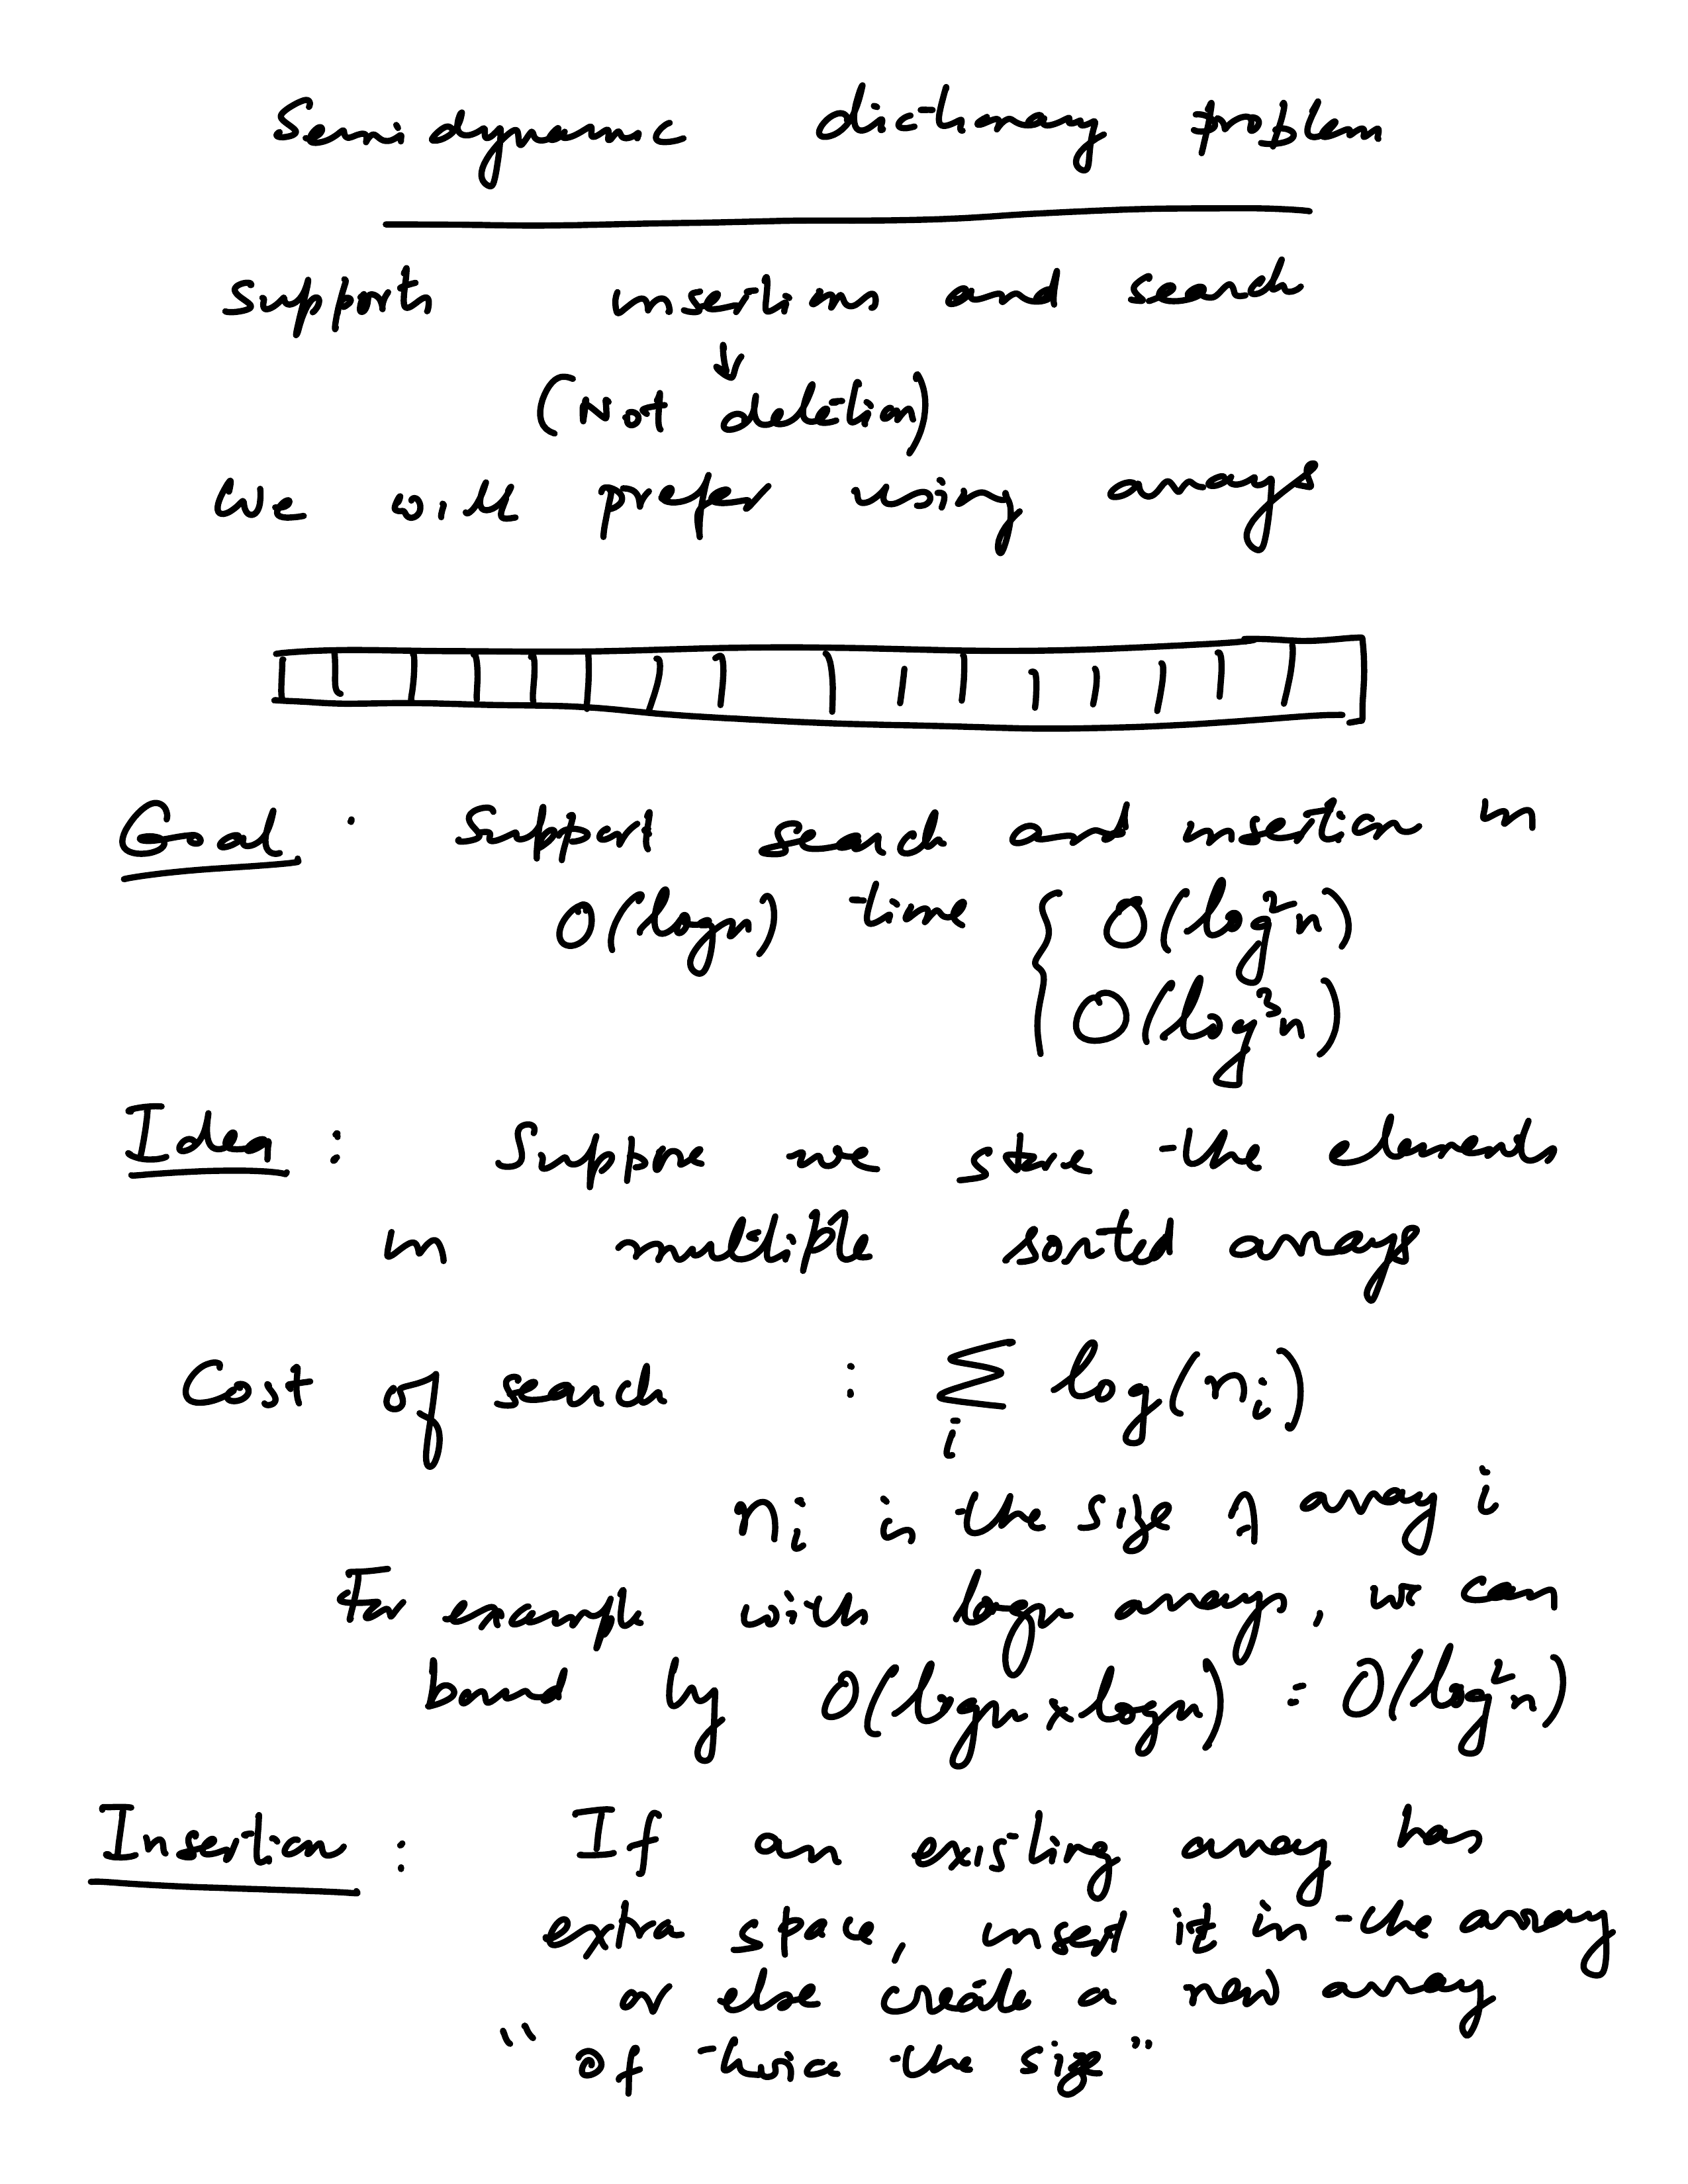 Semidynamic dictionary problem
Supports insertions and search
(Not deletion)
We will prefer using arrays
Goal : Support search and insertion in
O(logn) time { O(log²n)
O(log³n)
Idea : Suppose we store the elements
in multiple sorted arrays
Cost of search : ∑ log(nᵢ)
i
nᵢ is the size of array i
For example with logn arrays, we can
bound by O(logn × logn) = O(log²n)
Insertion : If an existing array has
extra space, insert it in the array
or else create a new array
"of twice the size"